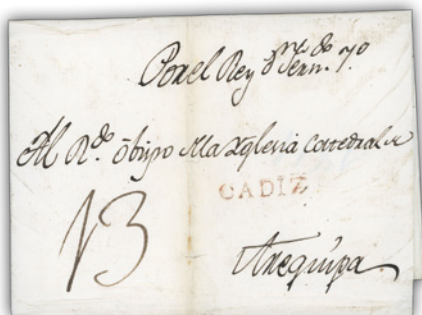 Por el Rey D. Fern. 7º
Al Rdo. Obispo dla Yglesia Catedral de
CADIZ
13
Arequipa